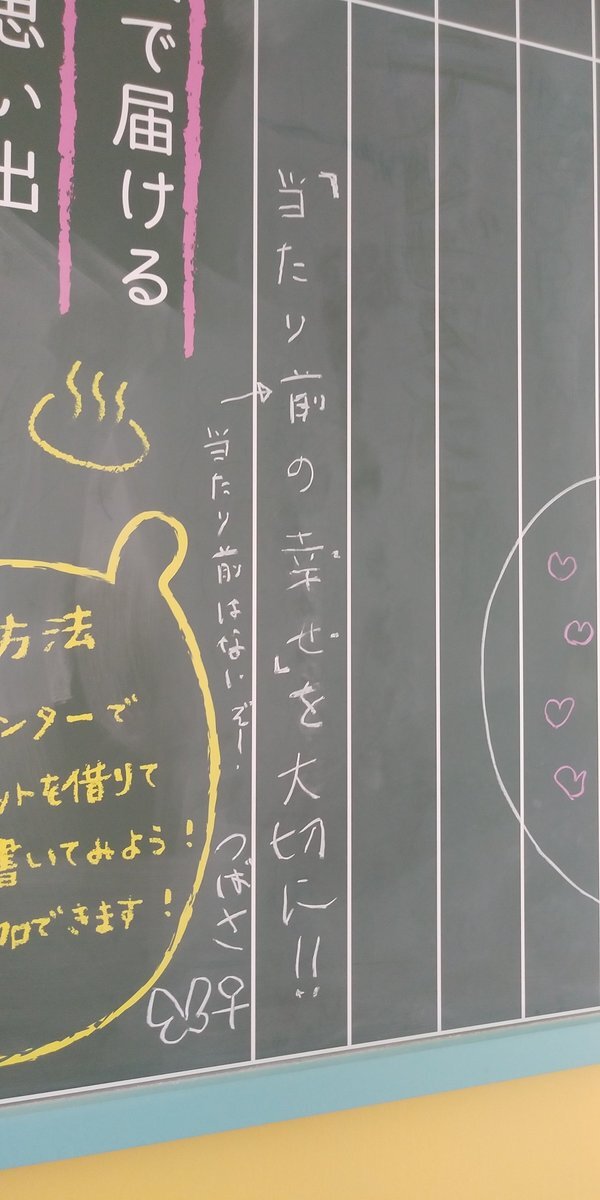 「当たり前の幸せ」を大切に!!
→当たり前はないぞー!
つばさ
で届ける
思い出
方法
ンターで
ットを借りて
書いてみよう!
できます!